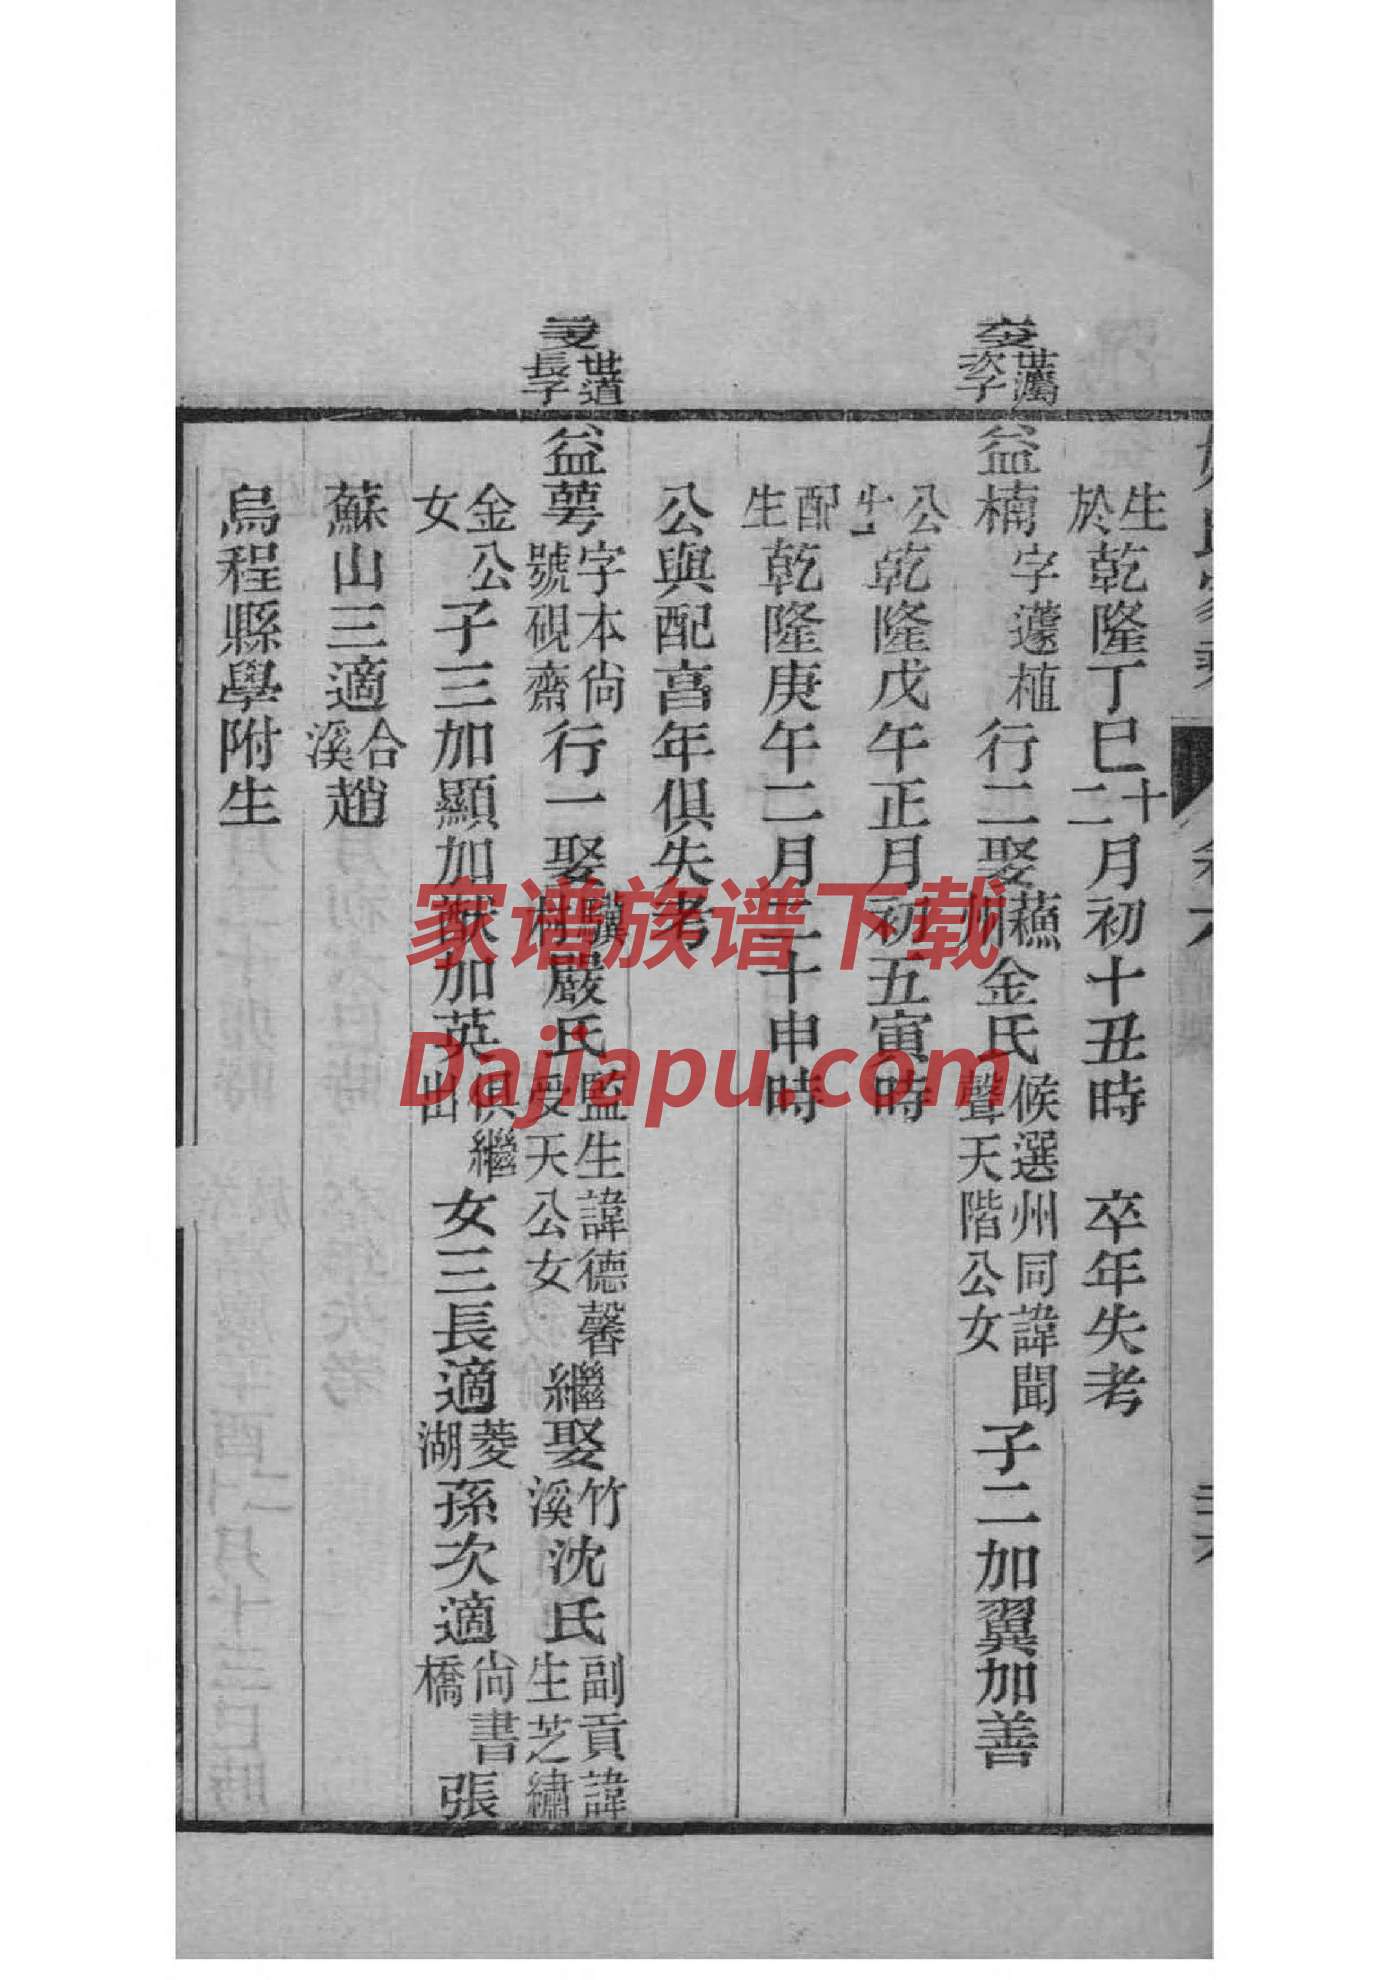 生於乾隆丁巳十二月初十丑時 卒年失考
世濁次子
益楠字蘧植行二娶蘇州金氏候選州同諱聞聲天階公女 子二加翼加善
公生乾隆戊午正月初五寅時
配生乾隆庚午二月二十申時
公與配葬年俱失考
世道長子
益萼字本尚號硯齋行一娶驥村嚴氏監生諱德馨受天公女 繼娶竹溪沈氏副貢諱生芝繡
金公女子三加顯加猷加英俱繼出女三長適菱湖孫次適尚書橋張
蘇山三適合溪趙
烏程縣學附生
家谱族谱下载
Dajiapu.com